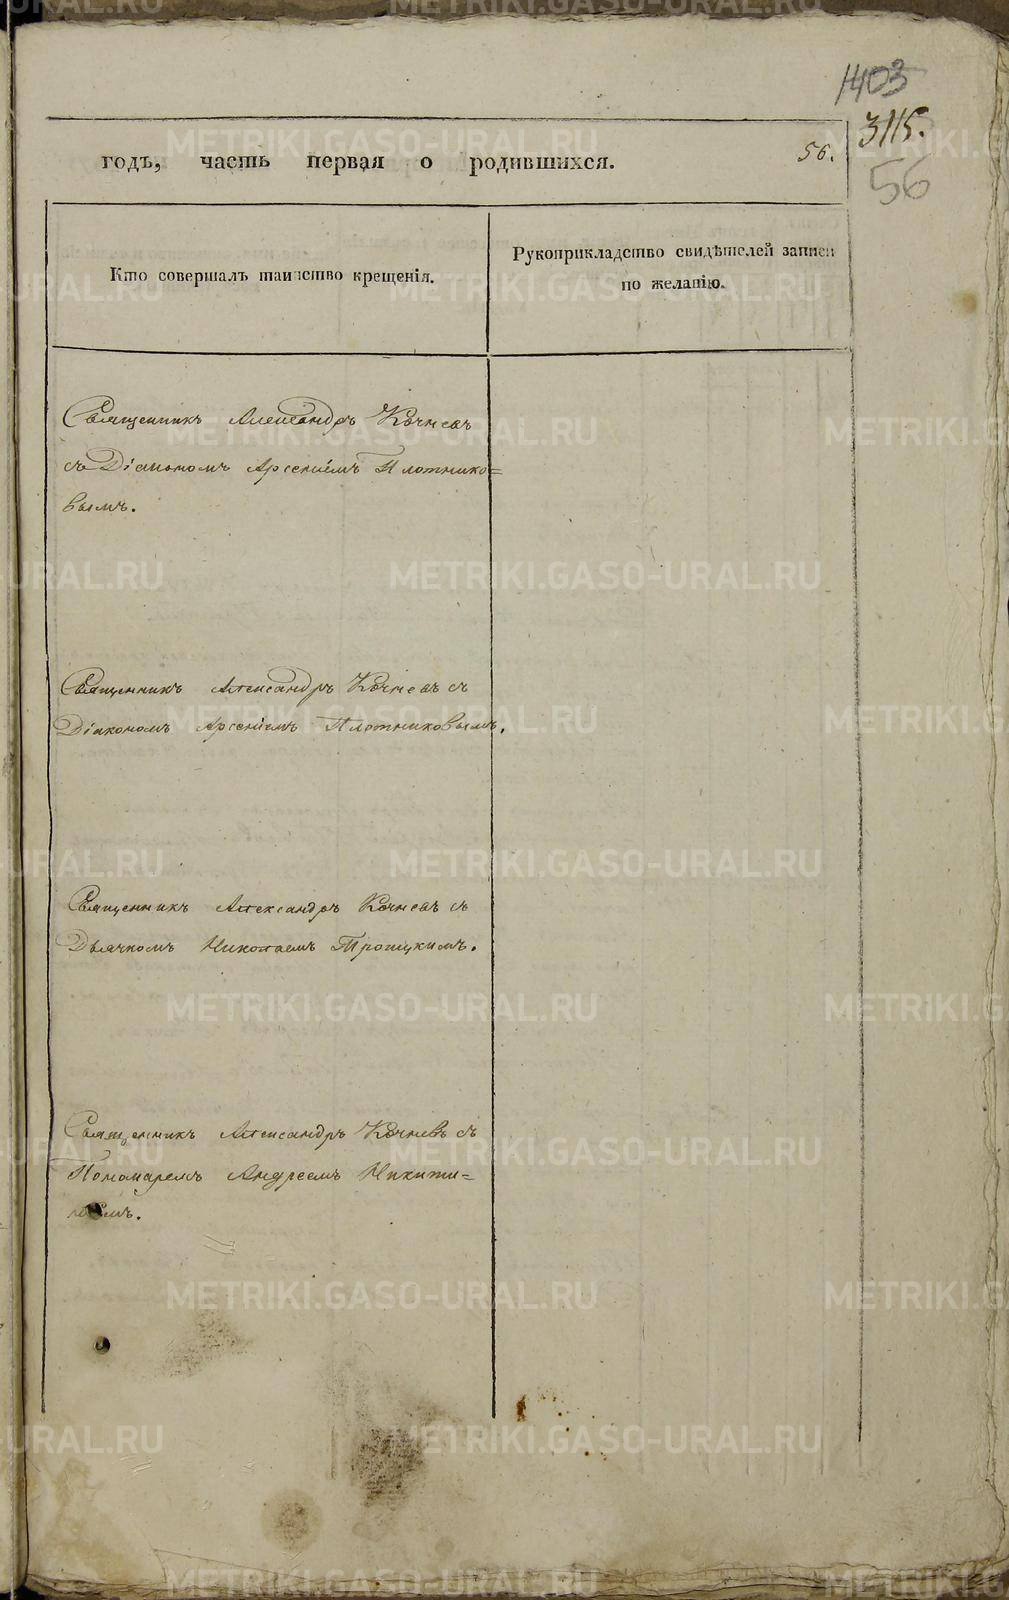 1403
3115.
годъ, часть первая о родившихся.
56.
56
Кто совершалъ таинство крещенія.
Рукоприкладство свидѣтелей записи
по желанію.
Священникъ Александръ Кочневъ
съ Діакономъ Арсеніемъ Плотнико=
вымъ.
Священникъ Александръ Кочневъ съ
Діакономъ Арсеніемъ Плотниковымъ.
Священникъ Александръ Кочневъ съ
Дьячкомъ Николаемъ Троицкимъ.
Священникъ Александръ Кочневъ съ
Пономаремъ Андреемъ Никити=
METRIKI.GASO-URAL.RU